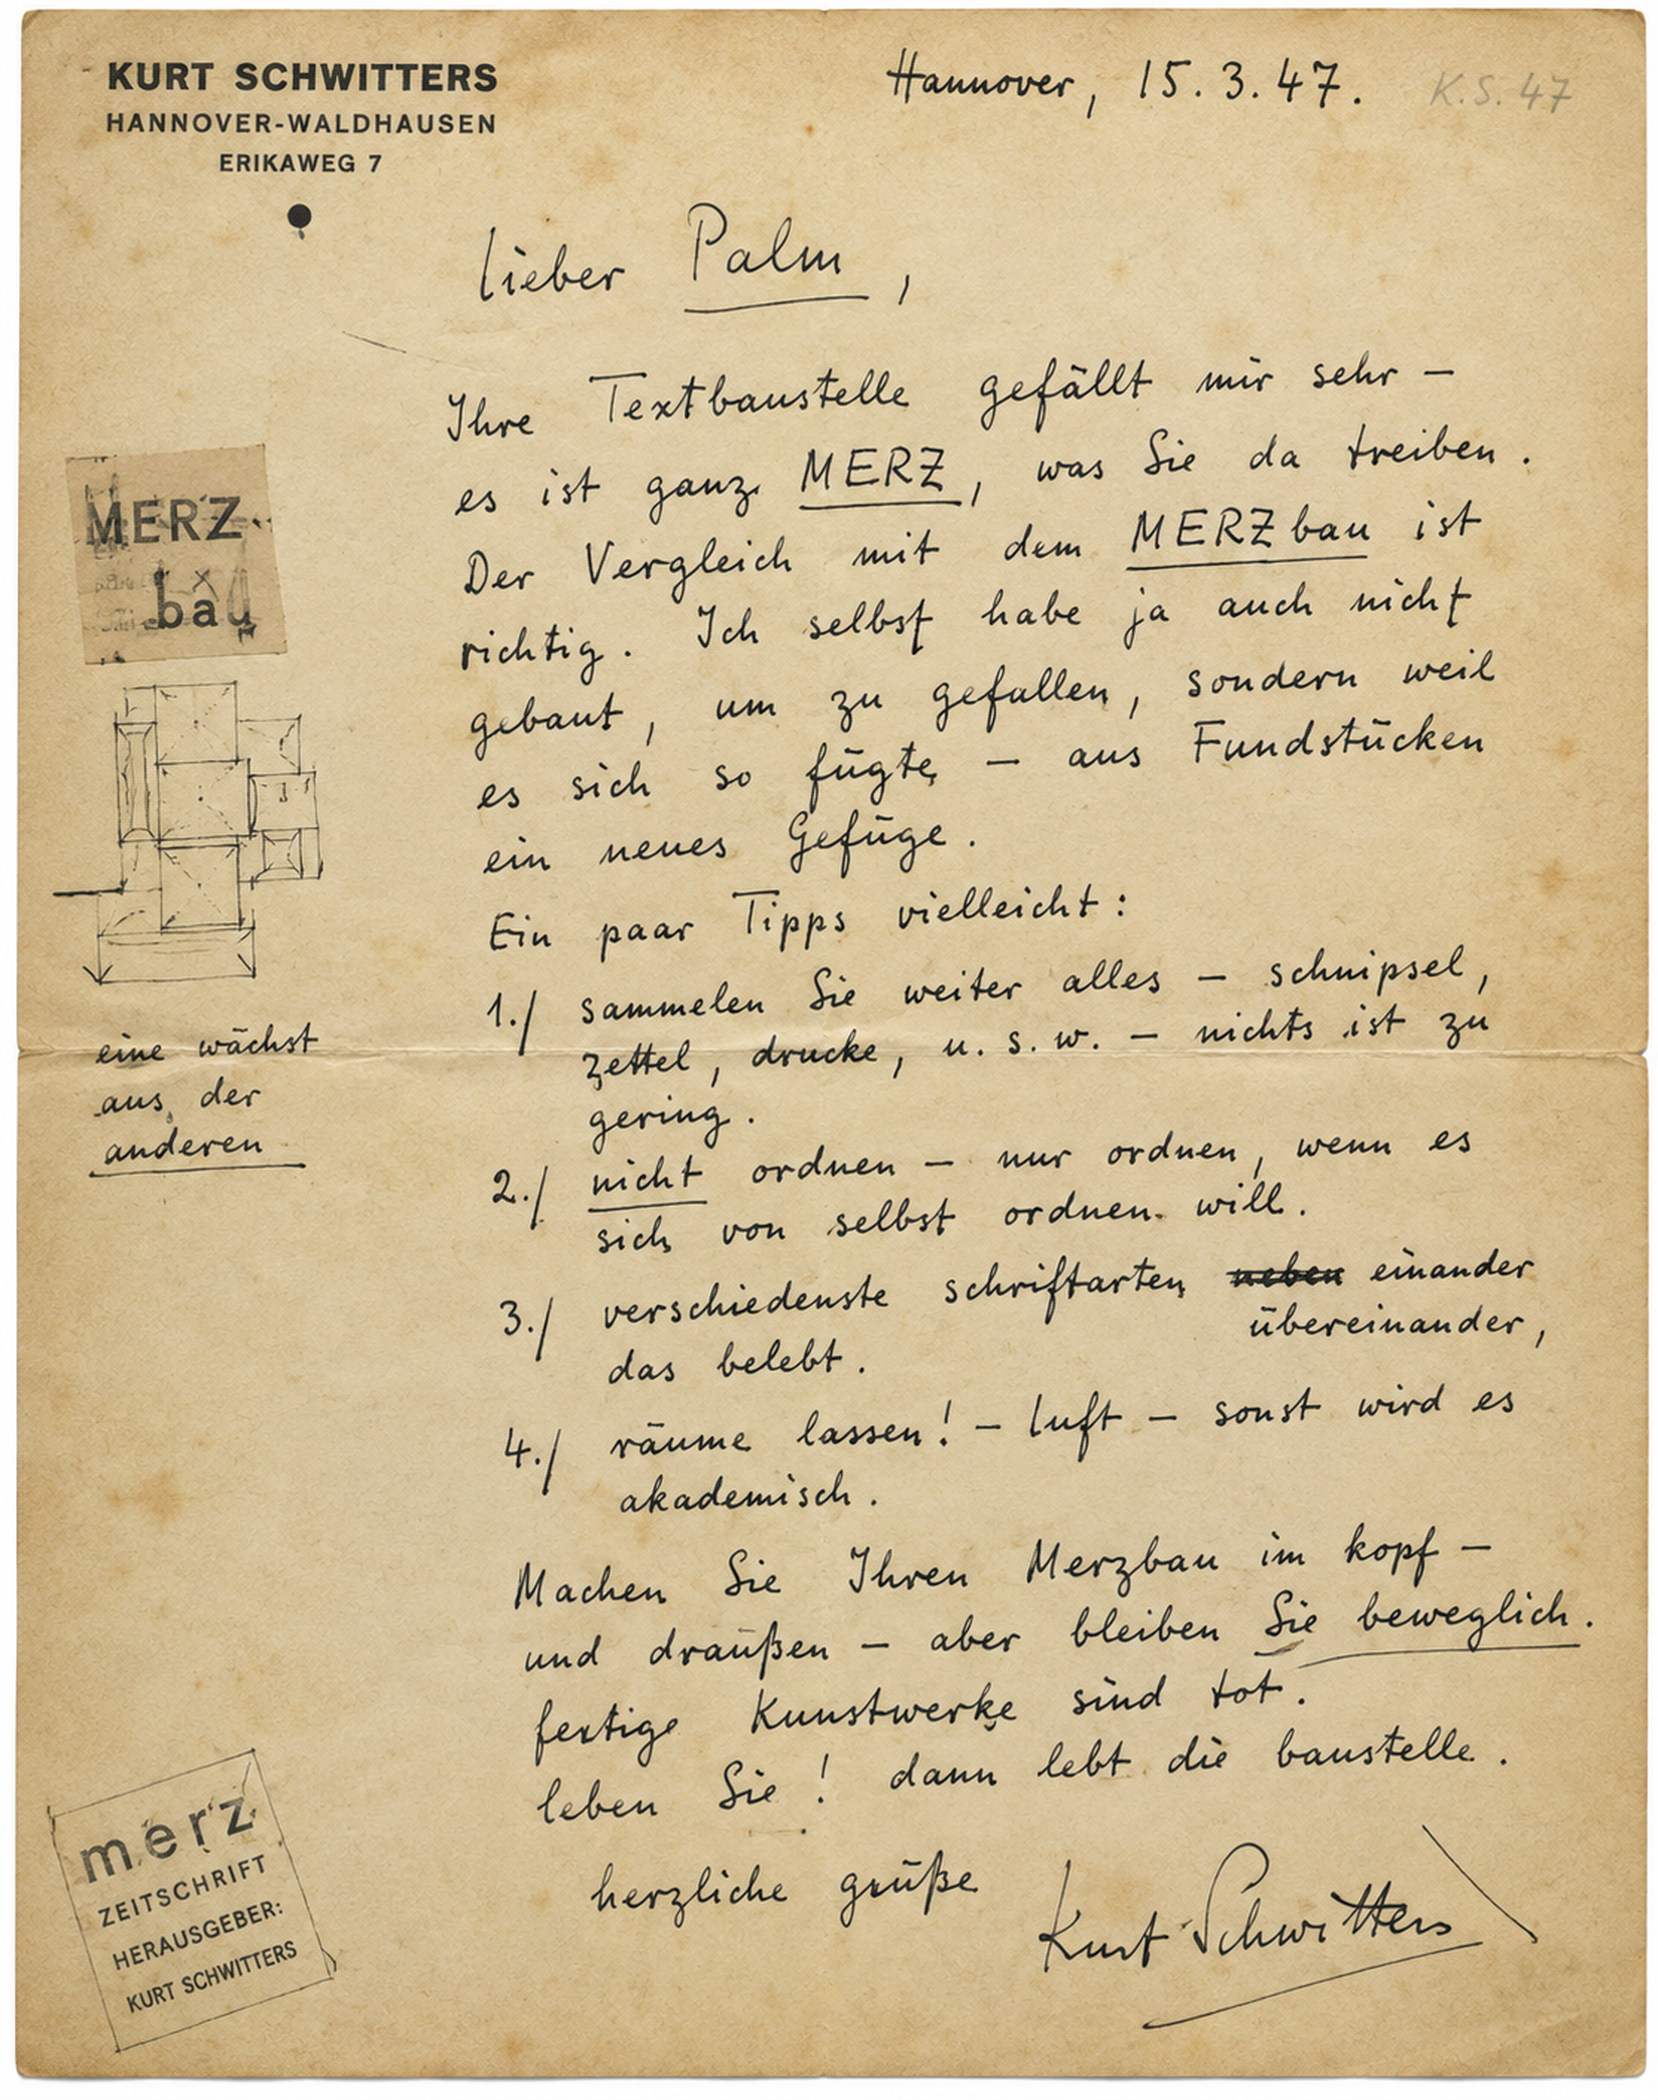 KURT SCHWITTERS
HANNOVER-WALDHAUSEN
ERIKAWEG 7
Hannover, 15. 3. 47.
K.S. 47
Lieber Palm,
Ihre Textbaustelle gefällt mir sehr –
es ist ganz MERZ, was Sie da treiben.
Der Vergleich mit dem MERZbau ist
richtig. Ich selbst habe ja auch nicht
gebaut, um zu gefallen, sondern weil
es sich so fügte, – aus Fundstücken
ein neues Gefüge.
Ein paar Tipps vielleicht:
1./ sammelen Sie weiter alles – schnipsel,
zettel, drucke, u. s. w. – nichts ist zu
gering.
2./ nicht ordnen – nur ordnen, wenn es
sich von selbst ordnen will.
3./ verschiedenste schriftarten neben einander
übereinander,
das belebt.
4./ räume lassen! – luft – sonst wird es
akademisch.
Machen Sie Ihren Merzbau im kopf –
und draußen – aber bleiben Sie beweglich.
fertige Kunstwerke sind tot.
leben Sie! dann lebt die baustelle.
herzliche grüße
Kurt Schwitters
MERZ
bau
eine wächst
aus der
anderen
merz
ZEITSCHRIFT
HERAUSGEBER:
KURT SCHWITTERS